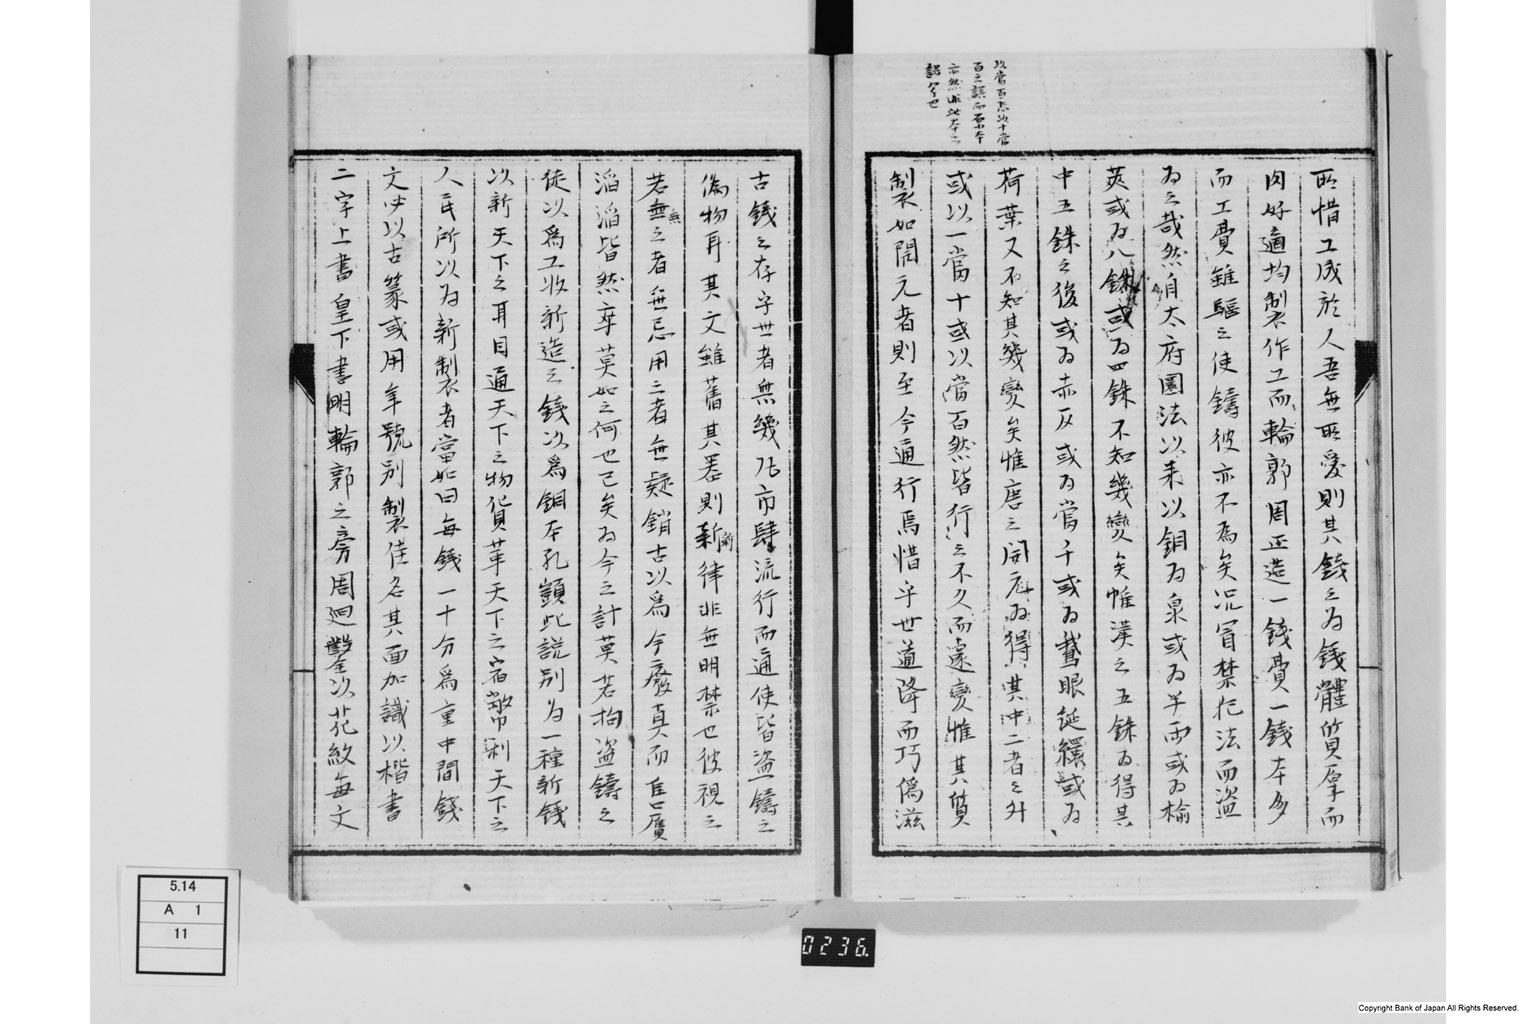 以當百為以十當
百之誤而石本
亦然非此本之
誤明矣也
所惜工成於人吾無所愛則其錢之為錢體質厚而
肉好適均製作工而輪郭周正造一錢費一錢本多
而工費雖驅之使鑄彼亦不為矣況冒禁犯法而盜
為之哉然自太府圜法以来以銅為泉或為半兩或為榆
莢或為八銖或為四銖不知幾變矣惟漢之五銖為得其
中五銖之後或為赤仄或為當千或為鵝眼綖繯或為
荷葉又不知其幾變矣惟唐之開元為得其中二者之外
或以一當十或以當百然皆行之不久而遽變惟其質
製如開元者則至今通行焉惜乎世道降而巧偽滋
古錢之存乎世者無幾凡市肆流行而通使皆盜鑄之
偽物耳其文雖舊其器則新律非無明禁也彼視之
若無之者無忌用之者無疑銷古以為今廢真而售贗
滔滔皆然卒莫如之何也已矣為今之計莫若拘盜鑄之
徒以為工收新造之錢以為銅本孔顗此說別為一種新錢
以新天下之耳目通天下之物貨革天下之宿弊利天下之
人民所以為新製者當如曰每錢一十分為重中間錢
文必以古篆或用年號別製佳名其面加識以楷書
二字上書皇下書明輪郭之旁周迴鑿以花紋每文
5.14
A 1
11
0236
Copyright Bank of Japan All Rights Reserved.